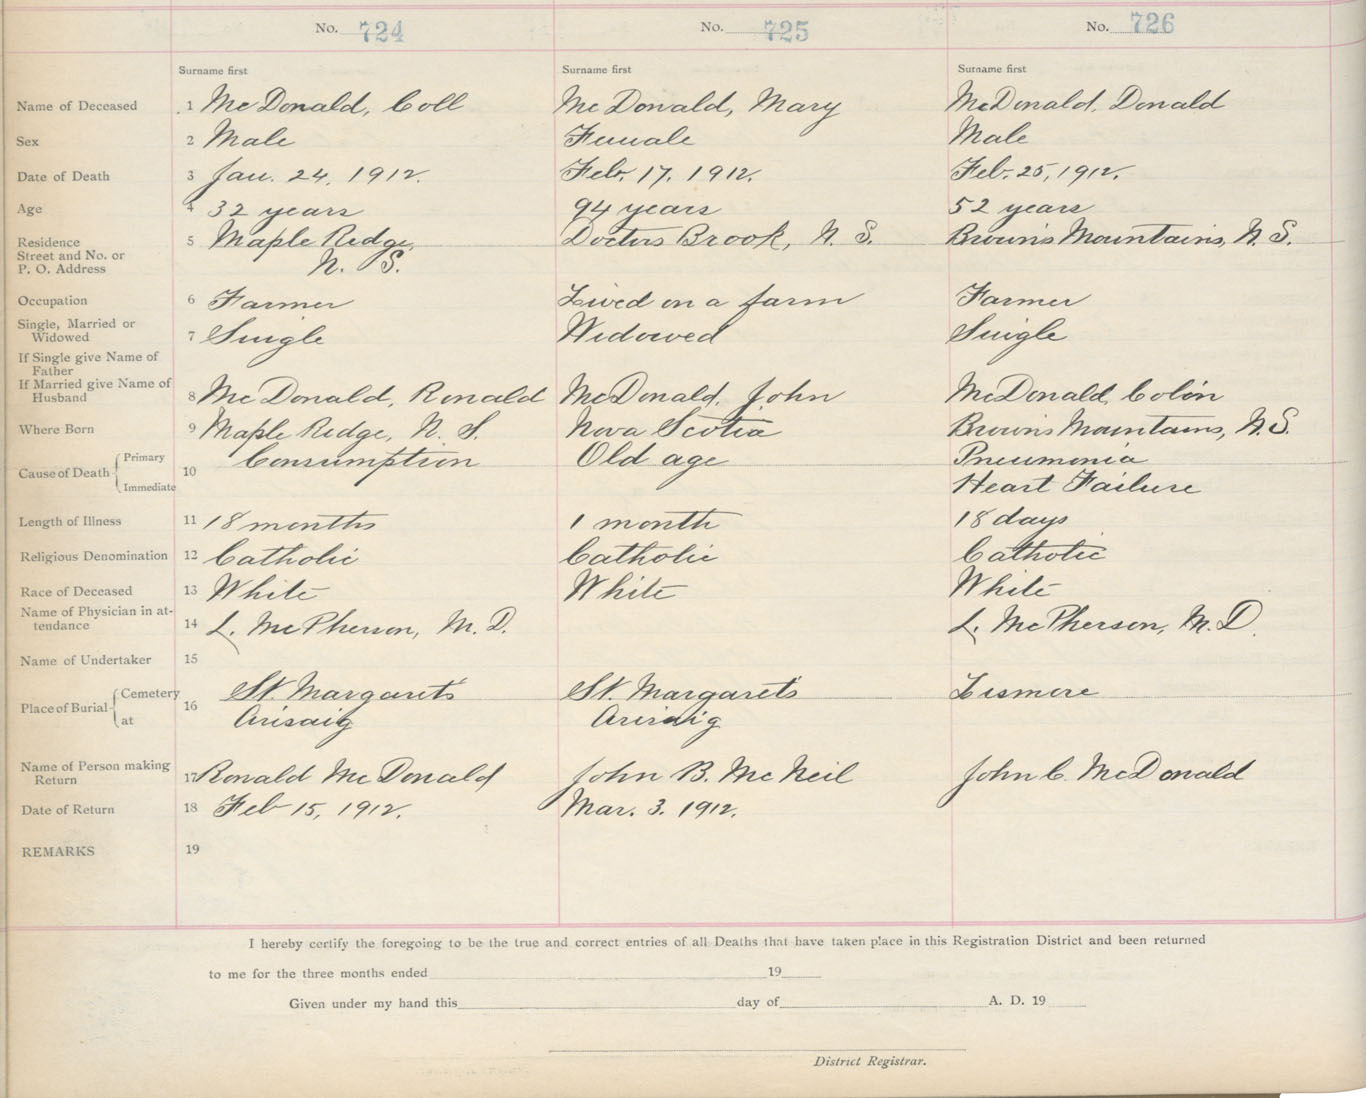 No. 724 No. 725 No. 726
Surname first Surname first Surname first
Name of Deceased 1 McDonald, Coll McDonald, Mary McDonald, Donald
Sex 2 Male Female Male
Date of Death 3 Jan. 24, 1912. Feb. 17, 1912. Feb. 25, 1912.
Age 4 32 years 94 years 52 years
Residence 5 Maple Redge, Doctors Brook, N. S. Browns Mountains, N. S.
Street and No. or
P. O. Address N. S.
Occupation 6 Farmer Lived on a farm Farmer
Single, Married or
Widowed 7 Single Widowed Single
If Single give Name of
Father
If Married give Name of
Husband 8 McDonald, Ronald McDonald, John McDonald, Colin
Where Born 9 Maple Redge, N. S. Nova Scotia Browns Mountains, N. S.
Cause of Death Primary 10 Consumption Old age Pneumonia
Immediate Heart Failure
Length of Illness 11 18 months 1 month 18 days
Religious Denomination 12 Catholic Catholic Catholic
Race of Deceased 13 White White White
Name of Physician in at-
tendance 14 L. McPherson, M. D. L. McPherson, M. D.
Name of Undertaker 15
Place of Burial Cemetery 16 St. Margaret's St. Margaret's Lismore
at Arisaig Arisaig
Name of Person making
Return 17 Ronald McDonald John B. McNeil John C. McDonald
Date of Return 18 Feb 15, 1912. Mar. 3. 1912.
REMARKS 19
I hereby certify the foregoing to be the true and correct entries of all Deaths that have taken place in this Registration District and been returned
to me for the three months ended 19
Given under my hand this day of A. D. 19
District Registrar.